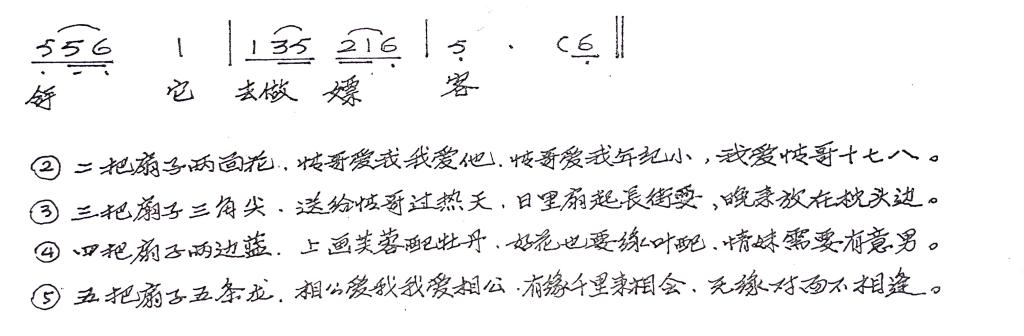 5 5 6 1 | 1 3 5 2 1 6 | 5 . ( 6 ||
它 去做 嫖 客
② 二把扇子两面花,情哥爱我我爱他,情哥爱我年纪小,我爱情哥十七八。
③ 三把扇子三角尖,送给情哥过热天,日里扇起長街耍,晚来放在枕头边。
④ 四把扇子两边蓝,上画芙蓉配牡丹,好花也要绿叶配,情妹需要有意男。
⑤ 五把扇子五条龙,相公爱我我爱相公,有缘千里来相会,无缘对面不相逢。